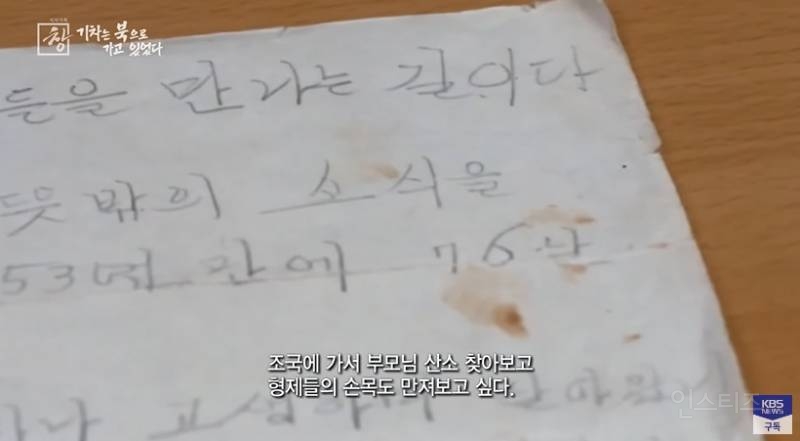 창 기차는 북으로
가고 있었다
들을 만나는 길이다
뜻밖의 소식을
53년 만에 76
조국에 가서 부모님 산소 찾아보고
형제들의 손목도 만져보고 싶다.
인스티즈
KBS
NEWS
구독